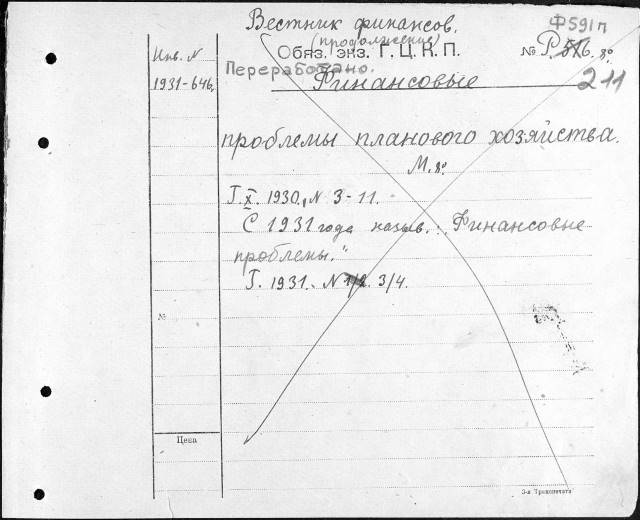 Вестник финансов.
(продолжение)
Ф591п
Инв. N
Обяз. экз. Г.Ц.К.П.
№ Р.516. 8º
Переработано.
1931-646.
Финансовые
211
проблемы планового хозяйства.
М. 8º
Г. X. 1930., N 3-11.
С 1931 года назыв.: „Финансовые
проблемы."
Г. 1931. N 1/2. 3/4.
№
Цена
3-я